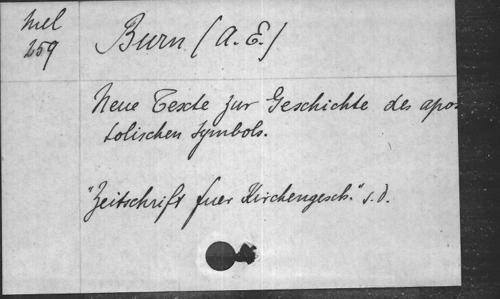 Mel
259
Burn (A. E.)
Neue Texte zur Geschichte des apos
tolischen Symbols.
"Zeitschrift fuer Kirchengesch." s.d.